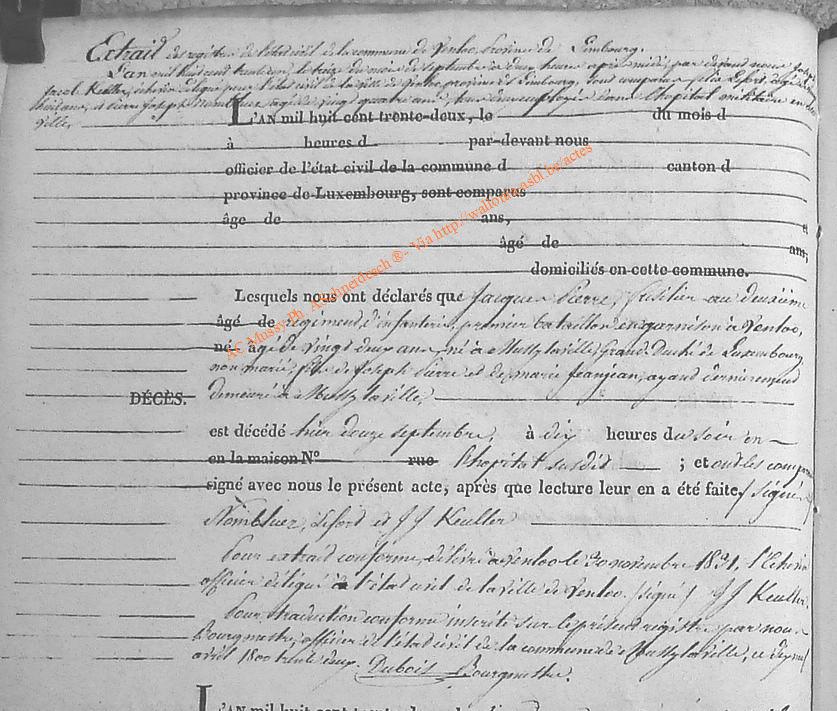 Extrait des registres de l'état civil de la commune de Venloo, Province de Limbourg.
L'an mil huit cent trente un, le treize du mois de septembre a deux heures après midi, par devant nous
Jacob Keuller, échevin délégué pour l'état civil de la ville de Venloo, province de Limbourg, sont comparus Lefort, âgé de
ans, et Pierre Joseph âgé de vingt quatre ans, tous deux employés dans l'hopital militaire en cette
ville,
L'AN mil huit cent trente-deux, le du mois d
à heures d par-devant nous
officier de l'état civil de la commune d canton d
province de Luxembourg, sont comparus
âgé de ans, et
âgé de ans,
domiciliés en cette commune.
Lesquels nous ont déclarés que Jacques Pierre, fusilier au deuxième
âgé de régiment d'infanterie, premier bataillon en garnison à Venloo,
né âgé de vingt deux ans, né à Mussy la ville, Grand Duché de Luxembourg
non marié, fils de Joseph Pierre et de Marie Jeanjean, ayant dernièrement
DÉCÈS. demeuré à Mussy la ville,
est décédé hier douze septembre, à dix heures du soir en
en la maison N° rue l'hopital susdit ; et ont les comparans
signé avec nous le présent acte, après que lecture leur en a été faite (signé)
Lefort et J J Keuller
Pour extrait conforme, délivré à Venloo le 30 novembre 1831, l'Echevin
officier délégué à l'état civil de la ville de Venloo. (signé) J J Keuller.
Pour traduction conforme inscrite sur le présent registre par nous
Bourgmestre, officier de l'état civil de la commune de Mussy la ville, ce dix neuf
avril 1800 trente deux. Dubois Bourgmestre.
L'AN mil huit cent trente-deux
AC Mussy Ph Aeschnerdesch ®- Via http://wallonia-asbl.be/actes